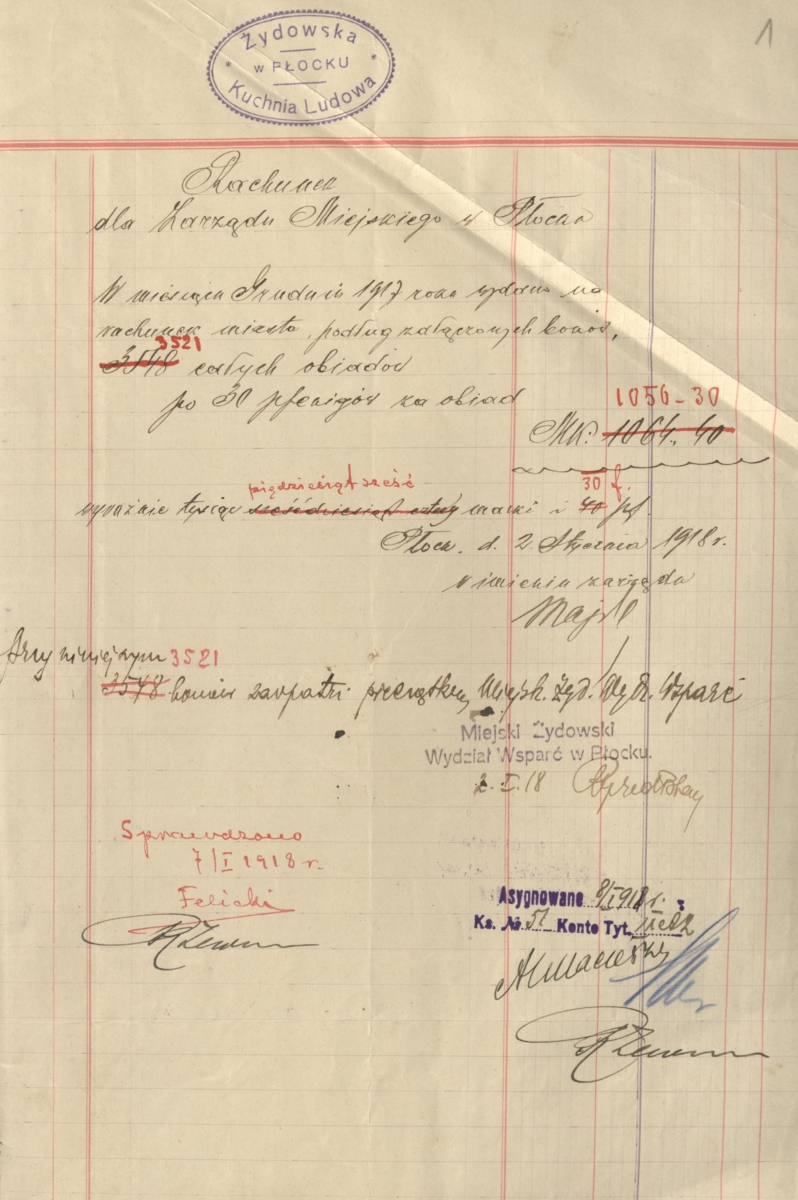 1
Żydowska
w PŁOCKU
Kuchnia Ludowa
Rachunek
dla Zarządu Miejskiego w Płocku
W miesiącu Grudniu 1917 roku wydano na
rachunek miasta, podług załączonych bonów,
3521
3548 całych obiadów
po 30 pfenigów za obiad
1056-30
Mk. 1064.40
pięćdziesiąt sześć 30 f.
wyraźnie tysiąc sześćdziesiąt cztery marki i 40 pf.
Płock. d. 2 Stycznia 1918 r.
w imieniu zarządu
Przy niniejszym 3521
3548 bonów zaopatrz. pieczątką Miejsk. Żyd. Wydz. Wsparć
Miejski Żydowski
Wydział Wsparć w Płocku.
2.I.18
Sprawdzono
7/I 1918 r.
Felicki
Asygnowane 8/I 1918 r.
Ks. № 51 Konto Tyt.